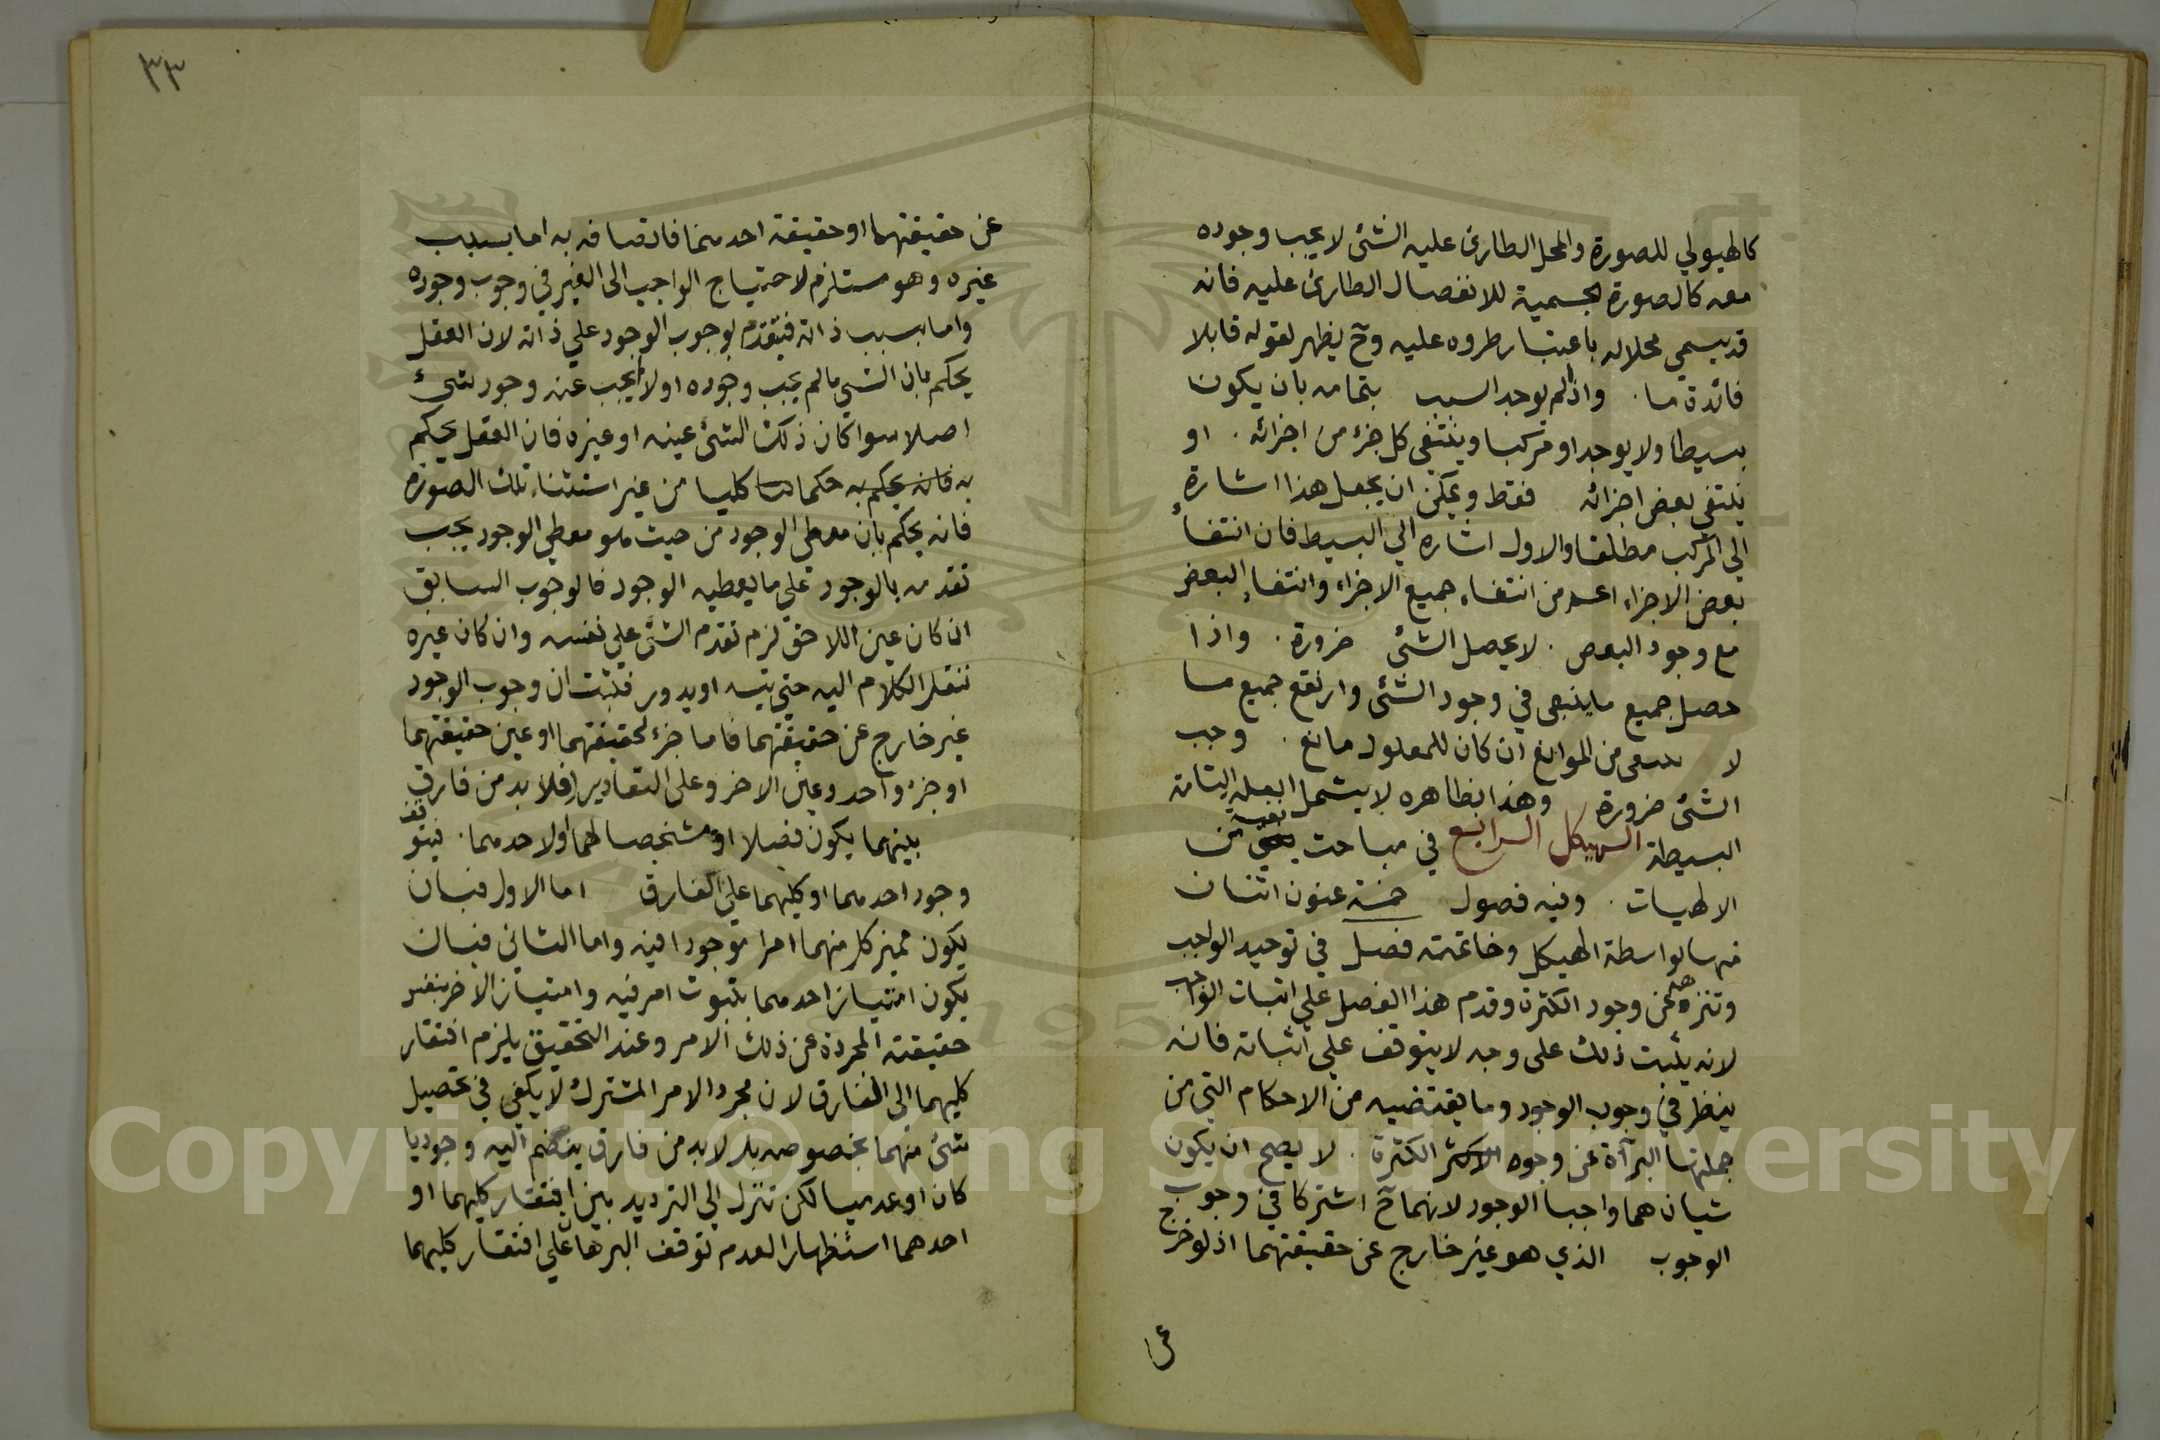 كالهيولي للصورة والمحل الطارئ عليه الشئ لا يجب وجوده
معه كالصورة الجسمية للانفصال الطارئ عليه فانه
قد يسمي محلا له باعتبار طروه عليه وح يظهر لقوله قابلا
فائدة ما . واذا لم يوجد السبب بتمامه بان يكون
بسيطا ولا يوجد او مركبا وينتفى كل جزء من اجزائه . او
ينتفى بعض اجزائه فقط ويمكن ان يجعل هذا اشارة
الي المركب مطلقا والاول اشاره الي البسيط فان انتفاء
بعض الاجزاء اعم من انتفاء جميع الاجزاء وانتفاء البعض
مع وجود البعض . لا يحصل الشئ ضرورة . واذا
حصل جميع ما ينبغى في وجود الشئ وارتفع جميع ما
لا ينبغى من الموانع ان كان للمعلول مانع . وجب
الشئ ضرورة وهذا بظاهره لا يشمل العلة التامة
البسيطة الهيكل الرابع في مباحث من
الالهيات . وفيه فصول خمسة عنون اثنان
منها بواسطة الهيكل وخاتمته فصل في توحيد الواجب
وتنزهه عن وجود الكثرة وقدم هذا الفصل علي اثبات الواجب
لانه يثبت ذلك على وجه لا يتوقف علي اثباته فانه
ينظر في وجوب الوجود وما يقتضيه من الاحكام التي من
جملتها البرآءة عن وجوه الكثرة . لا يصح ان يكون
شيان هما واجبا الوجود لانهما ح اشتركا في وجوب
الوجوب الذي هو غير خارج عن حقيقتهما اذ لو خرج
عن حقيقتهما او حقيقة احدهما فاتصافه به اما بسبب
غيره وهو مستلزم لاحتياج الواجب الى الغير في وجوب وجوده
واما بسبب ذاته فيتقدم لوجوب الوجود علي ذاته لان العقل
يحكم بان الشى ما لم يجب وجوده اولا لم يجب عنه وجود شئ
اصلا سوا كان ذلك الشئ عينه او غيره فان العقل يحكم
به فانه يحكم به حكما كليا من غير استثناء تلك الصورة
فانه يحكم بان معطى الوجود من حيث هو معطي الوجود يجب
تقدمه بالوجود على ما يعطيه الوجود فالوجوب السابق
ان كان عين اللاحق لزم تقدم الشئ على نفسه وان كان غيره
ننقل الكلام اليه حتى يتسه او يدور فثبت ان وجوب الوجود
غير خارج عن حقيقتهما فاما جزء لحقيقتهما او عين حقيقتهما
او جزء واحد وعين الاخر وعلى التقادير فلا بد من فارق
بينهما يكون فصلا او مشخصا لهما او لاحدهما . فيتوقف
وجود احدهما او كليهما علي الفارق اما الاول فبان
يكون مميز كل منهما امرا موجودا فيه واما الثاني فبان
يكون امتياز احدهما بثبوت امر فيه وامتياز الاخر بنفس
حقيقته المجردة عن ذلك الامر وعند التحقيق يلزم افتقار
كليهما الى الفارق لان مجرد الامر المشترك لا يكفي في تحصيل
شئ منهما بخصوصه بل لا بد من فارق ينضم اليه وجوديا
كان او عدميا لكن تنزل الي الترديد بين افتقار كليهما او
احدهما استظهارا لعدم توقف البرهان علي افتقار كليهما
٣٣
Copyright © King Saud University
195